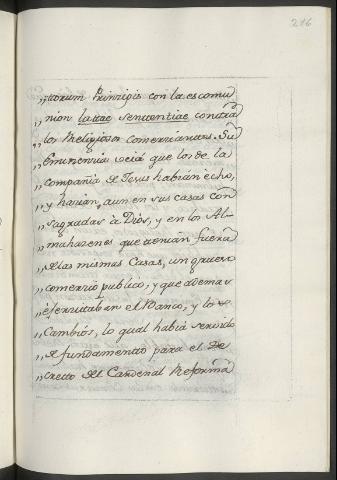 216
„torum Prinzipis con la escomu
„nion latae sententiae contra
„los Religiosos comerziantes. Su
„Eminenzia veía que los de la
„Compañia de Jesus habian echo,
„y havian, aun en sus casas con
„sagradas à Dios, y en los Al-
„mahazenes que tenian fuera
„de las mismas Casas, un grueso
„comerzio publico, y que ademas
„se exercitaban en el Banco, y los
„Cambios, lo qual habia servido
„de fundamento para el De
„creto del Cardenal Reforma